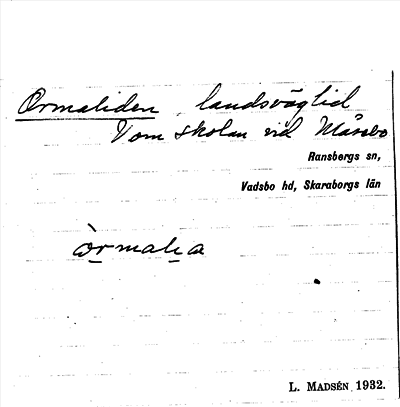 Ormaliden, landsväglid
V om skolan vid Måsebo
Ransbergs sn,
Vadsbo hd, Skaraborgs län
L. MADSÉN 1932.